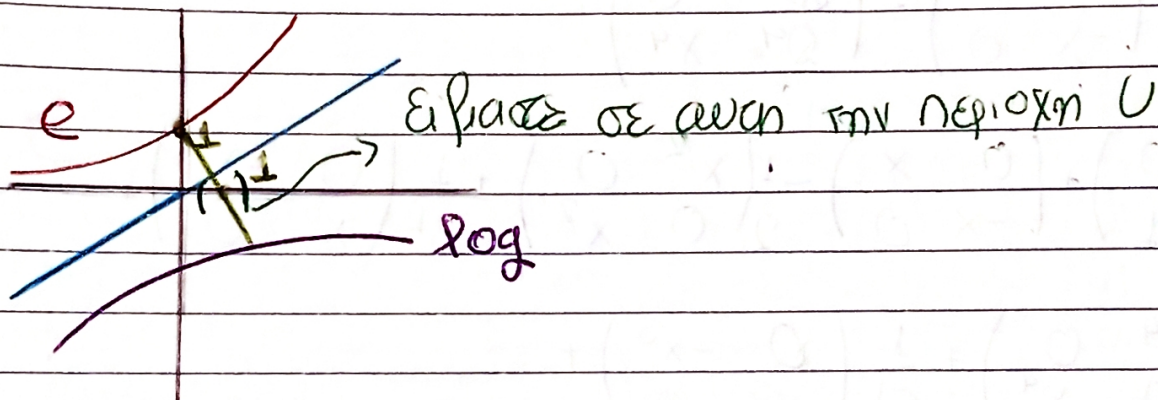 e
είμαστε σε αυτή την περιοχή U
log